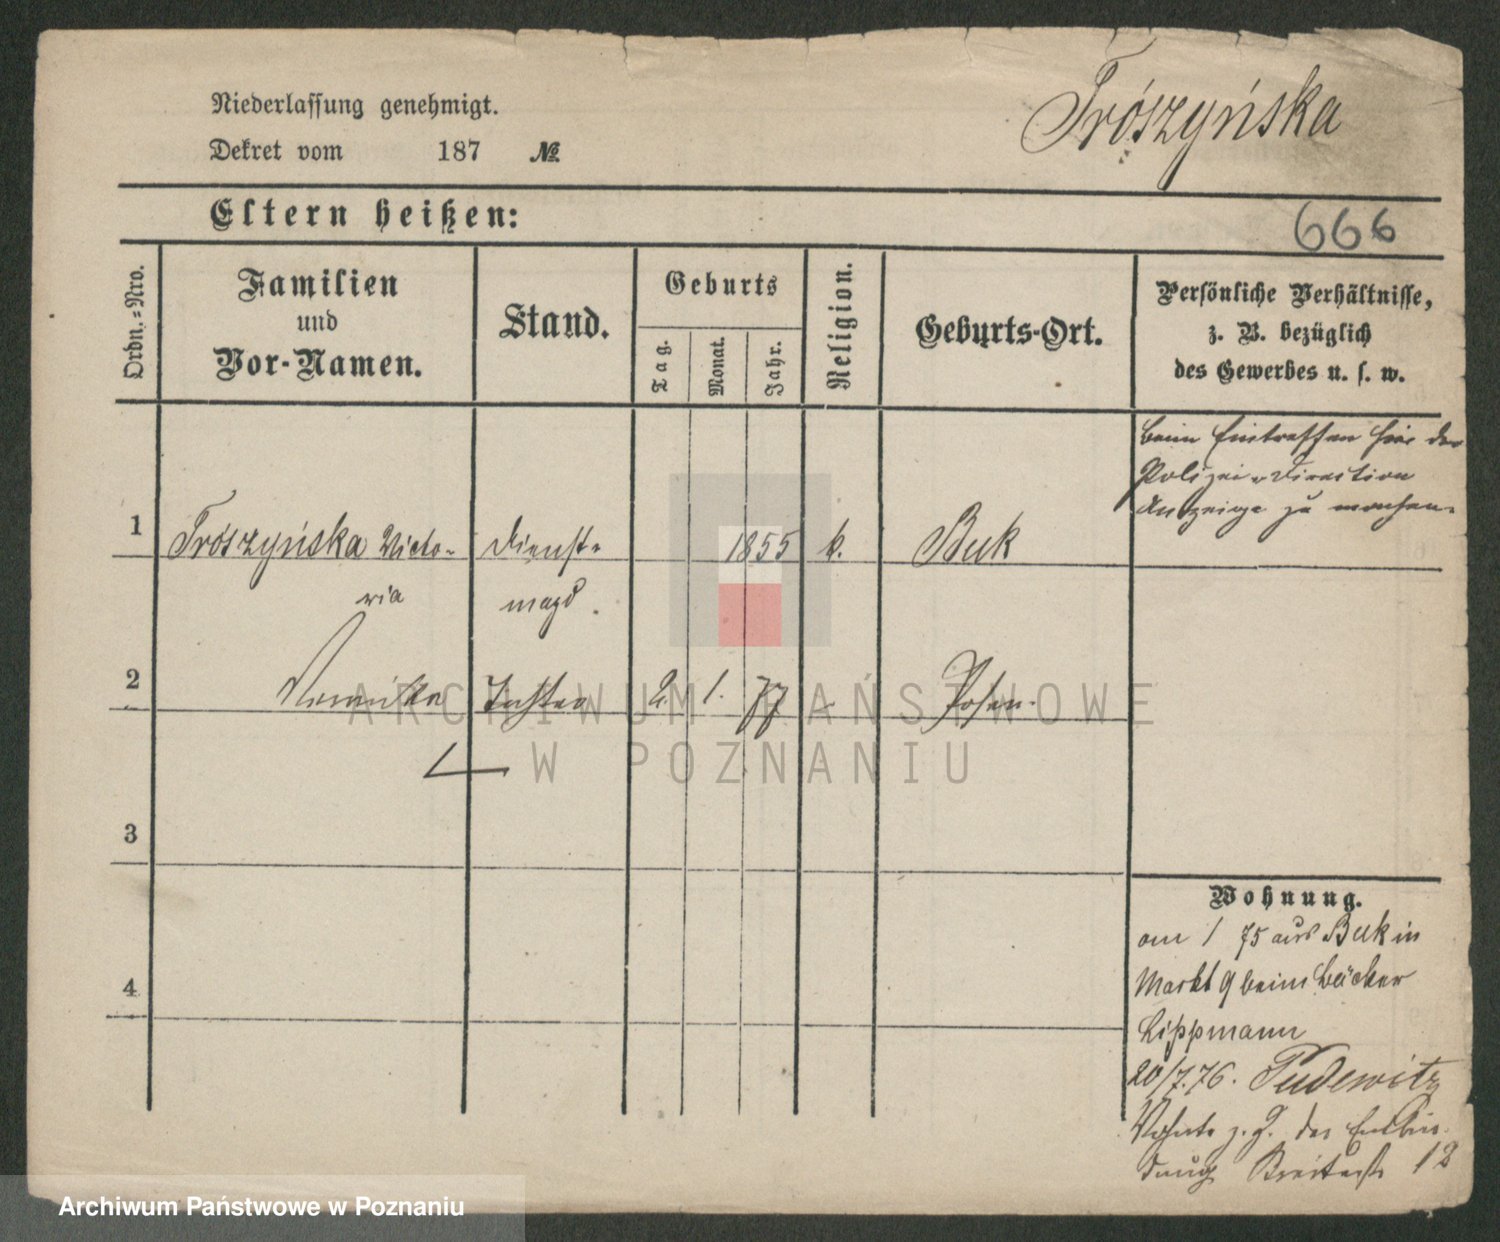 Niederlassung genehmigt.
Trószyńska
Dekret vom 187 №
Eltern heißen:
666
Ordn.-Nro.
Familien
und
Vor-Namen.
Stand.
Geburts
Tag.
Monat.
Jahr.
Religion.
Geburts-Ort.
Persönliche Verhältnisse,
z. B. bezüglich
des Gewerbes u. s. w.
beim Eintreffen hier der
Polizei-Direction
Anzeige zu machen.
1 Trószyńska Victo- Dienst- 1855 k. Buk
ria magd.
2 Tochter 2. 1. 77 Posen.
3
4
Wohnung.
am 1 75 aus Buk in
Markt 9 beim Bäcker
Lippmann
20/7.76. Pudewitz
Wohnte z. Z. der Entbin-
dung Breitestr 12
ARCHIWUM PAŃSTWOWE
W POZNANIU
Archiwum Państwowe w Poznaniu